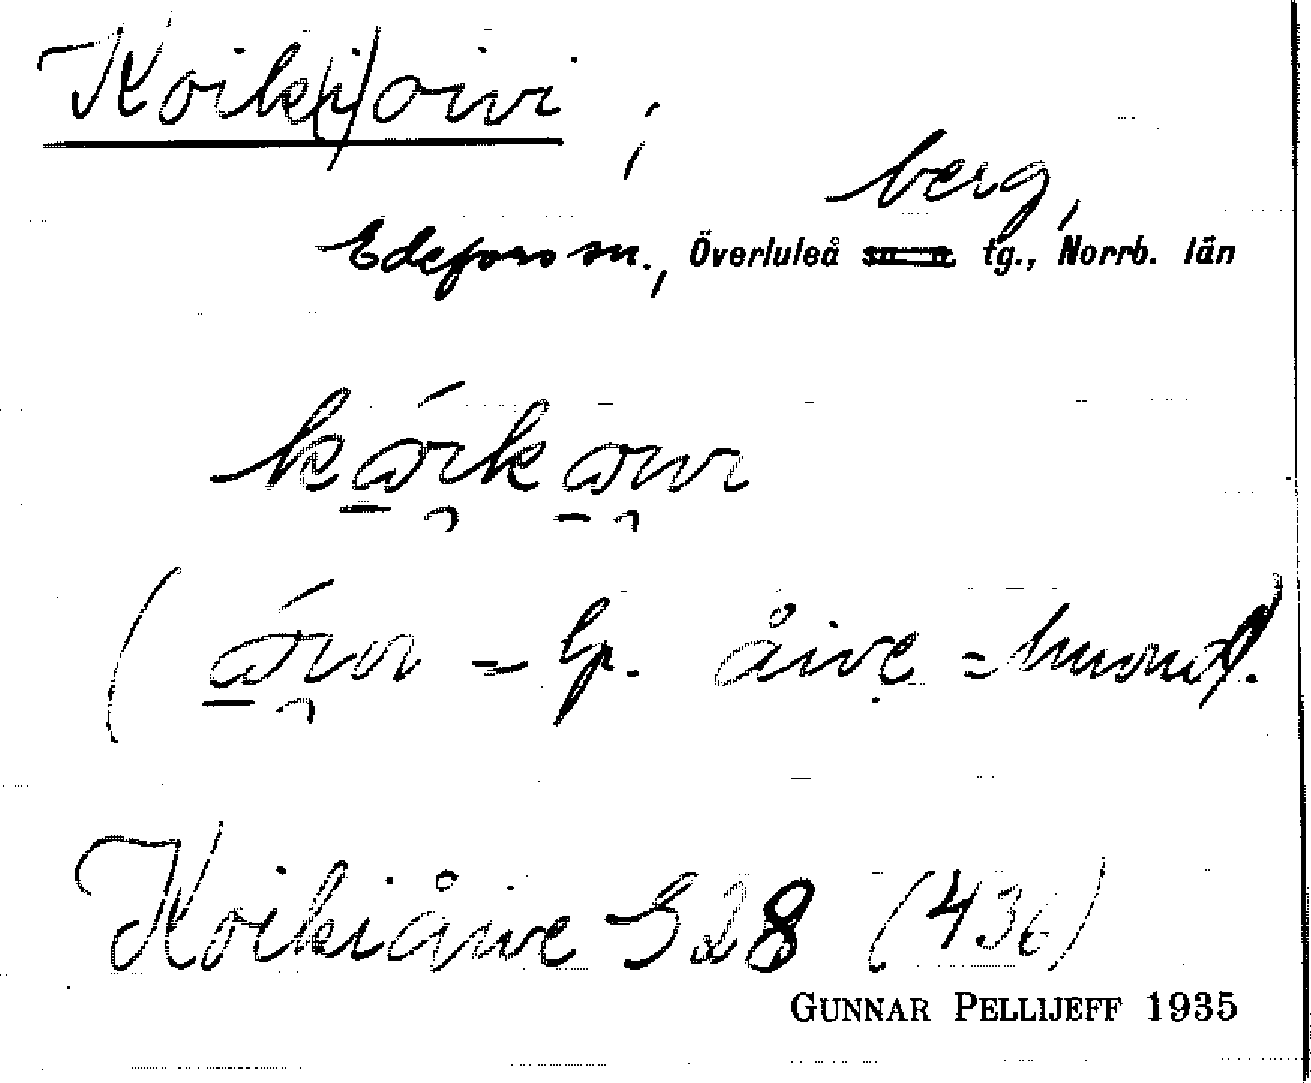 Koik(i)oivi,
berg,
Edefors sn., Överluleå tg., Norrb. län
lp. åive = huvud.
Koikiåive S28 (436)
GUNNAR PELLIJEFF 1935